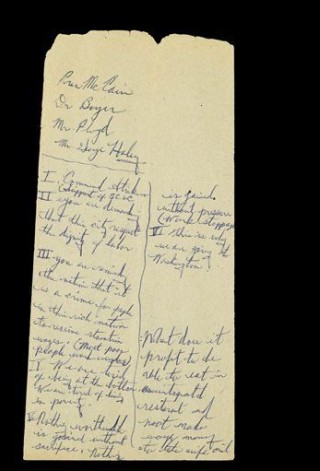 Pres McCain
Dr Boyer
Mr.
Mr. George Haley
I Commend strike
(support of SCLC
II you are demanding
that this city respect
the dignity of labor
III you are reminding
the nation that it
is a crime for people
in this rich nation
to receive starvation
wages. (Most poor
people work
I We are tired
of being at the bottom
We are tired of living
in poverty
V Nothing worthwhile
is gained without
sacrifice, Nothing
is gained
without pressure
(Work stoppage
VI this is why
we are going to
Washington
What does it
profit to be
able to eat in
an integrated
restaurant and
not make
enough money
to take wife out